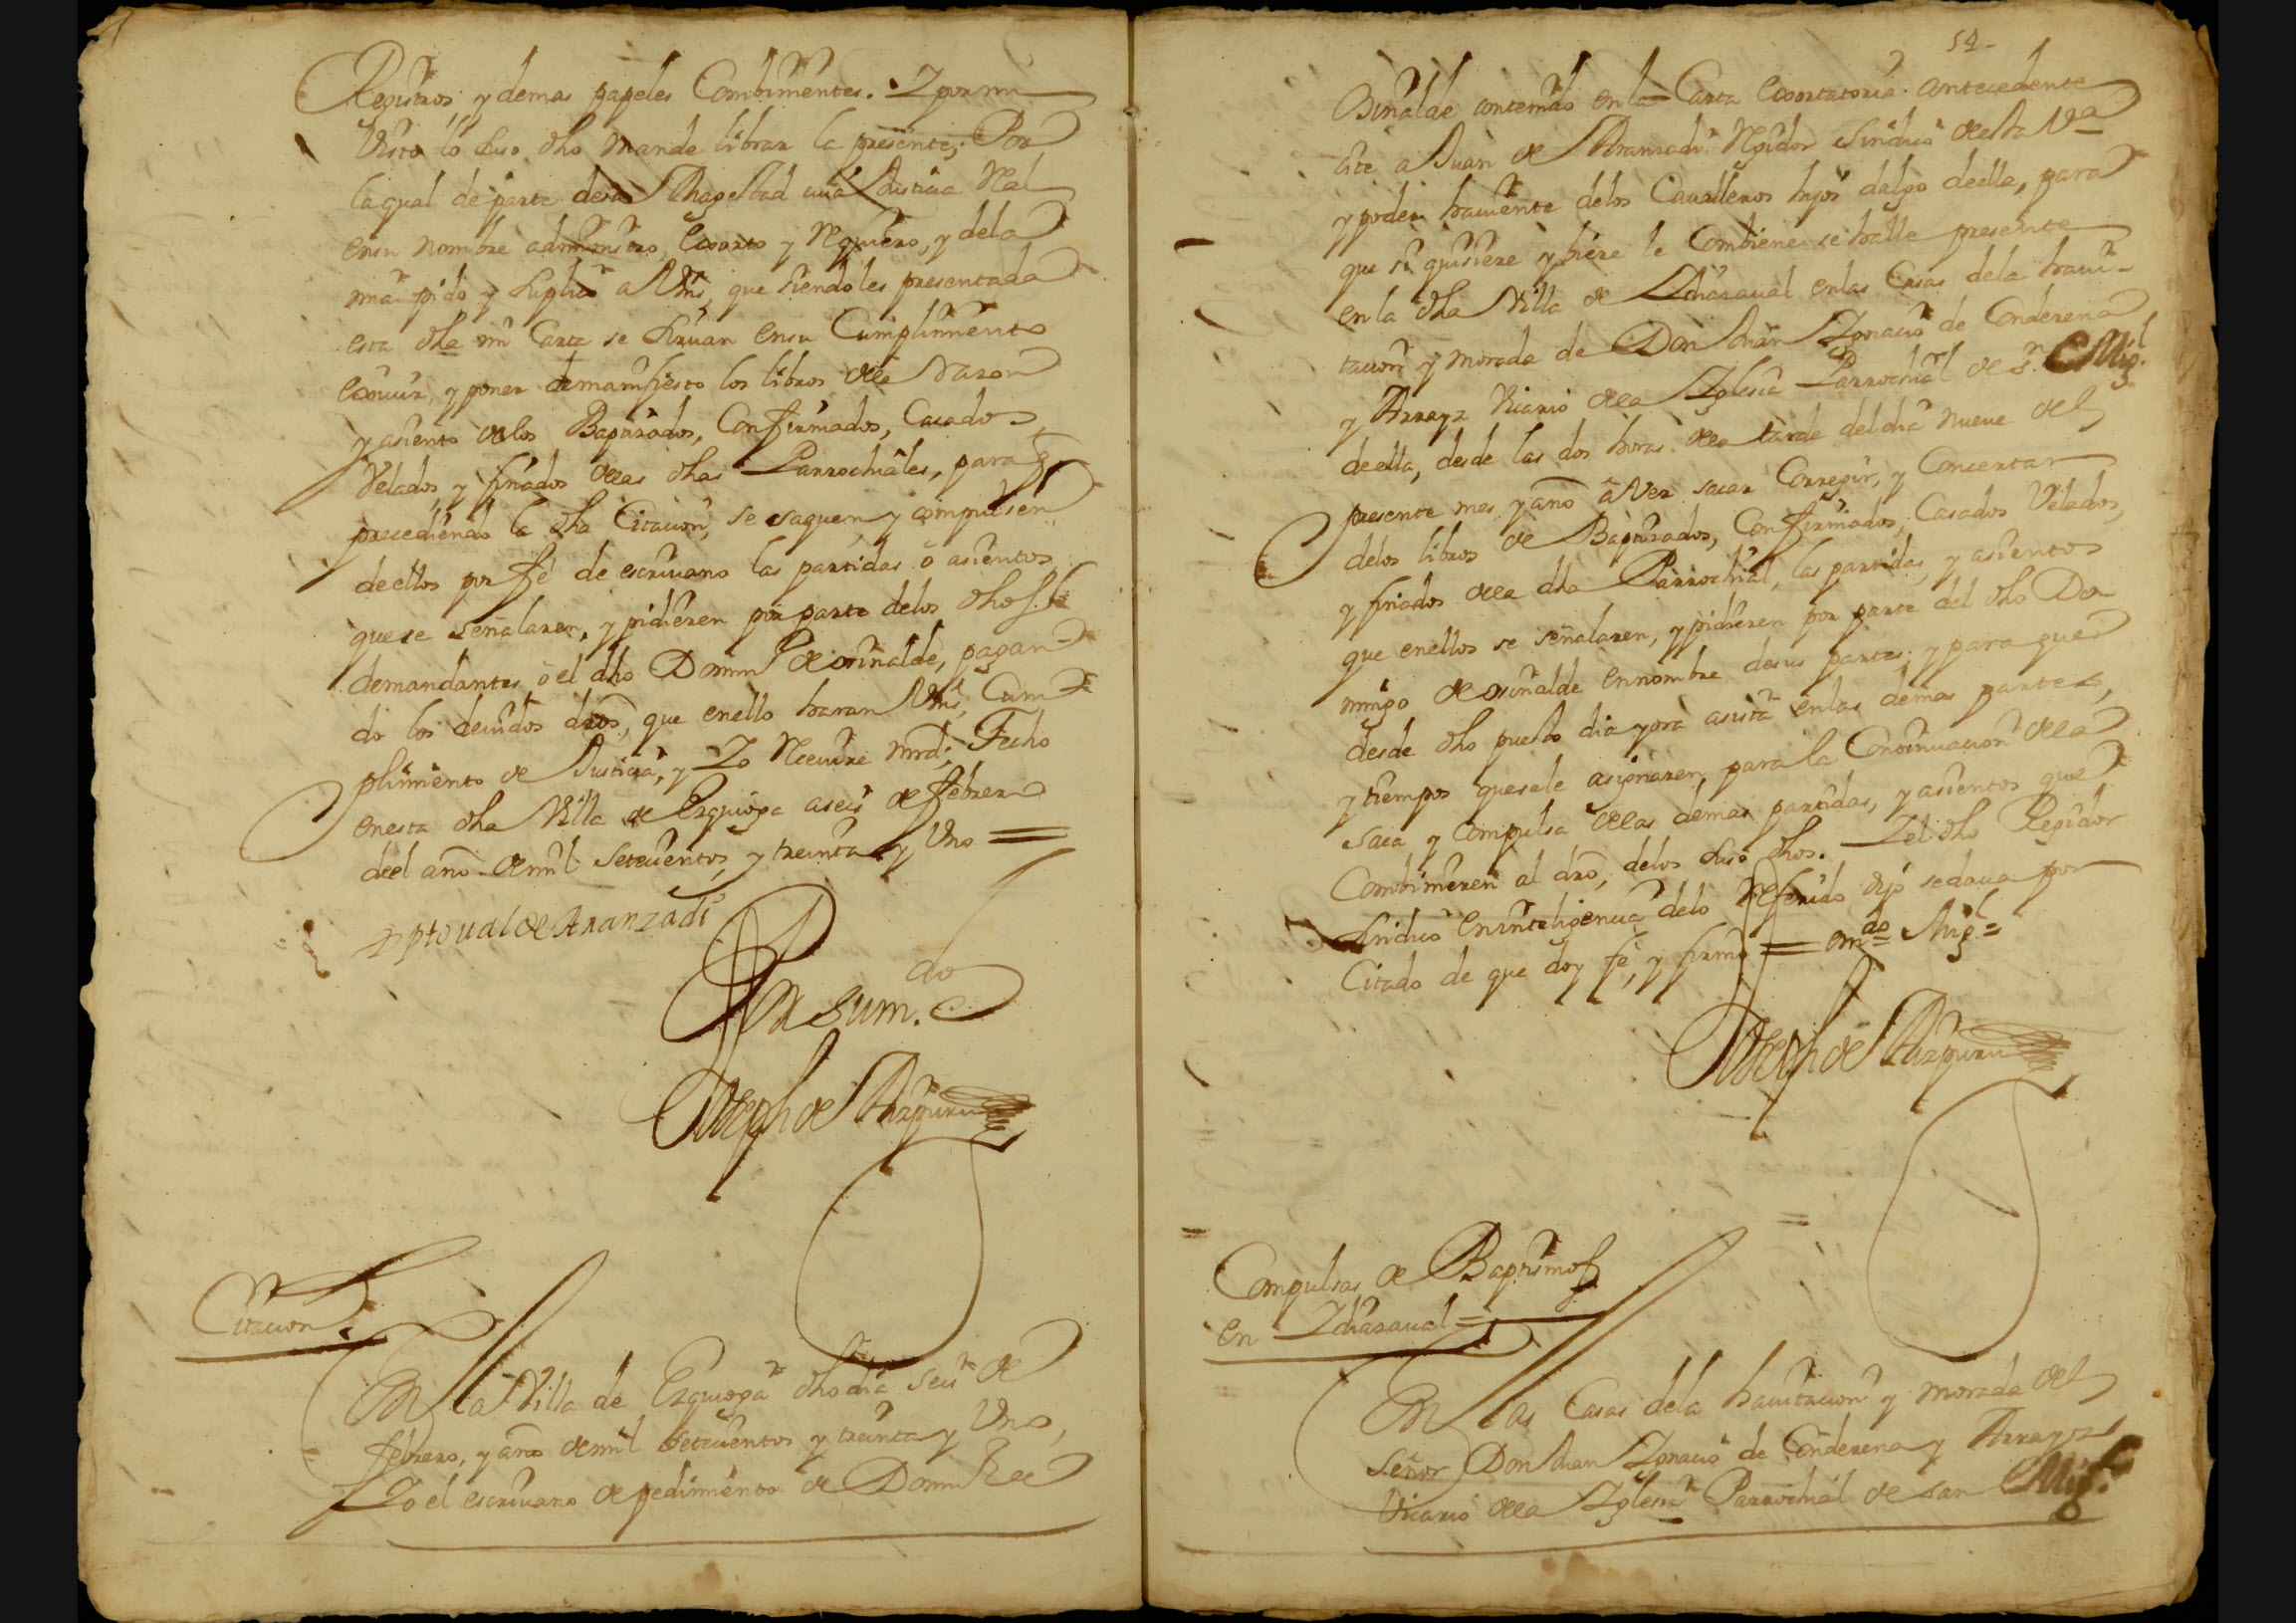 Registros, y demas papeles Combinientes. Y por mi
Visto lo suso dho mande librar la presente; Por
la qual de parte de su Magestad cuia Justicia Real
en su nombre administro, Exorto y Requiero, y de la
mia pido y suplico a Vms, que siendoles presentada
esta dha mi Carta se siruan en su Cumplimiento
exiuir, y poner de manifiesto los libros de la razon
y asiento de los Baptizados, Confirmados, Casados
Velados, y finados de las dhas Parrochiales, para q̃
precediendo la dha Citacion, se saquen, y compulsen
de ellos por fé de escriuano las partidas ó asientos
que se señalaren, y pidieren por parte de los dhos
demandantes, ó el dho Domin de osinalde, pagan
do los deuidos drõs, que en ello haran Vms, Cum
plimiento de Justicia, y Yo Receuire mrd; Fecho
en esta dha Villa de Ezquioga a seis de febrero
de el año de mil setecientos, y treinta y Uno =
xptoual de Aranzadi
Por su m.do
Joseph de Aizpuru
Citacion
En la Villa de Ezquioga dho dia seis de
febrero, y año de mil setecientos y treinta y Uno,
Yo el escriuano de pedimiento de Domin de
52
Osinalde contenido en la Carta exortatoria antecedente
cite a Juan de Aranzadi Regidor Sindico de esta Va
y poder hauiente de los Caualleros hijos dalgo de ella, para
que si quisiere y biere le Combiene se halle presente
en la dha Villa de Ychasaual en las Casas de la haui-
tacion y morada de Don Juan Ygnacio de Conderena
y Arrayz Vicario de la Yglesia Parrochial de Sn. Migl.
de ella, desde las dos horas de la tarde del dia nueue del
presente mes y año â Ver sacar Corregir, y Concertar
de los libros de Baptizados, Confirmados, Casados Velados,
y finados de la dha Parrochial, las partidas, y asientos
que en ellos se señalaren, y pidieren por parte del dho Do
mingo de osinalde en nombre de sus partes; y para que
desde dho puesto dia y ora asista en las demas partes,
y tiempos que se le asignaren, para la Continuacion de la
saca y Compulsa de las demas partidas, y asientos que
Combinieren al drõ, de los suso dhos. Y el dho Regidor
Sindico en inteligencia de lo Referido dijo se daua por
Citado de que doy fé, y firmé = emdo = Migl =
Joseph de Aizpuru
Compulsas de Baptismos
en Ychasaual =
En las Casas de la hauitacion y morada del
Señor Don Juan Ygnacio de Conderena y Arrayz
Vicario de la Yglesia Parrochial de San Migl.